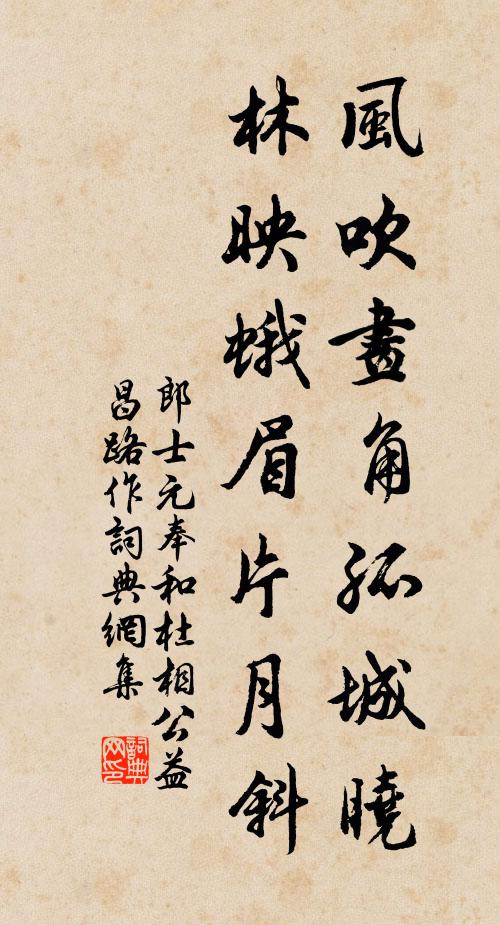 風吹畫角孤城曉
林映蛾眉片月斜
郎士元奉和杜相公益
昌路作詞典網集
詞典
网印